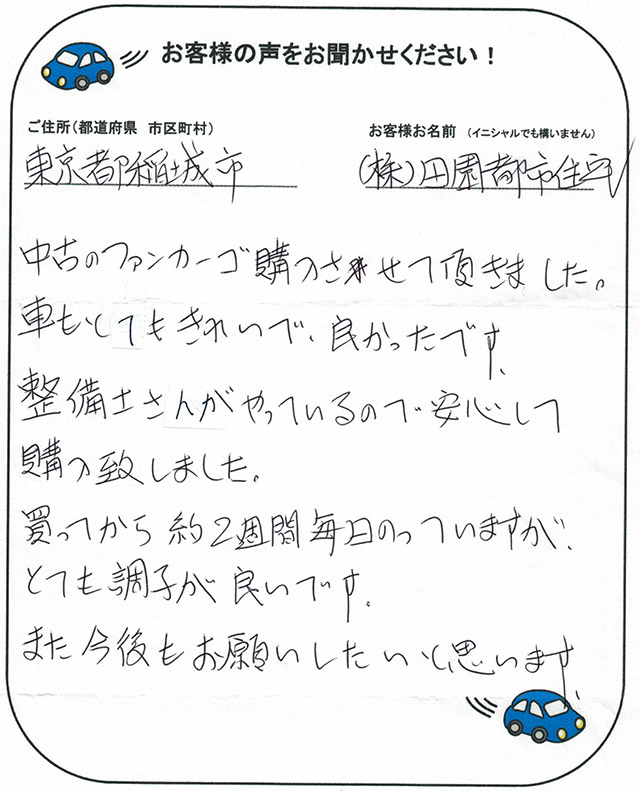 お客様の声をお聞かせください！
ご住所（都道府県　市区町村）
お客様お名前　（イニシャルでも構いません）
東京都稲城市
（株）田園都市住宅
中古のファンカーゴ購入させて頂きました。
車もとてもきれいで、良かったです。
整備士さんがやっているので安心して
購入致しました。
買ってから約2週間毎日のっていますが、
とても調子が良いです。
また今後もお願いしたいと思います。